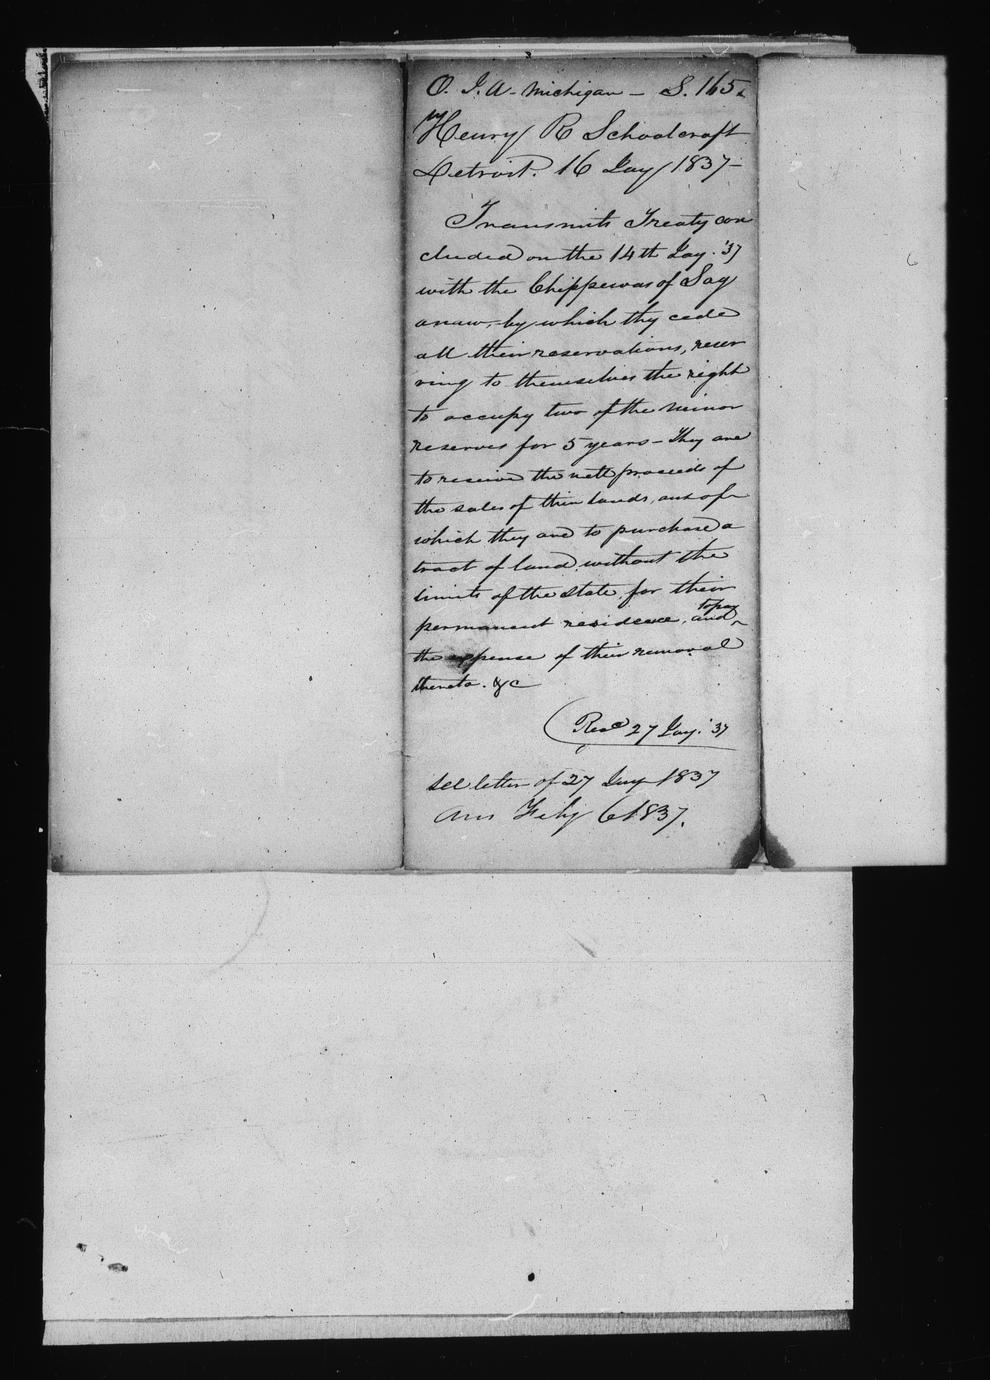 O. I. A. Michigan - S. 165.
Henry R Schoolcraft
Detroit. 16 Jany 1837-
Transmits Treaty con
cluded on the 14th Jany. '37
with the Chippewas of Sag
anaw, by which thy cede
all their reservations, reser
ving to themselves the right
to occupy two of the minor
reserves for 5 years - They are
to receive the nett proceeds of
the sales of their lands, out of
which they are to purchase a
tract of land without the
limits of the state for their
permanent residence, and to pay
the expense of their removal
thereto. &c
Recd 27 Jany. '37
see letter of 27 Jany 1837
Ans Feby 6 1837.
6